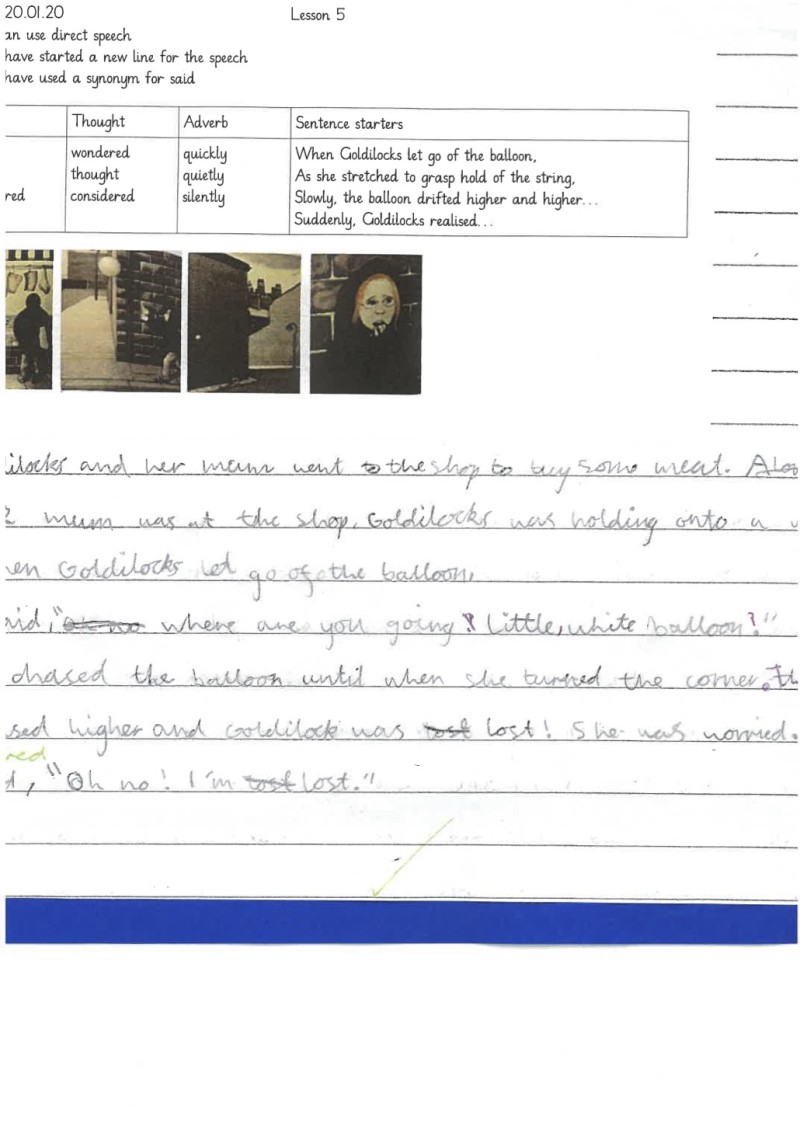 20.01.20 Lesson 5
an use direct speech
have started a new line for the speech
have used a synonym for said
Thought Adverb Sentence starters
wondered quickly When Goldilocks let go of the balloon,
thought quietly As she stretched to grasp hold of the string,
red considered silently Slowly, the balloon drifted higher and higher...
Suddenly, Goldilocks realised...
ilocks and her mum went to the shop to buy some meat.
mum was at the shop, Goldilocks was holding onto a
en Goldilocks let go of the balloon,
aid, "oh no where are you going? little, white balloon?"
chased the balloon until when she turned the corner. Th
sed higher and Goldilock was lost lost! She was worried.
red
d, "Oh no! I'm lost lost."